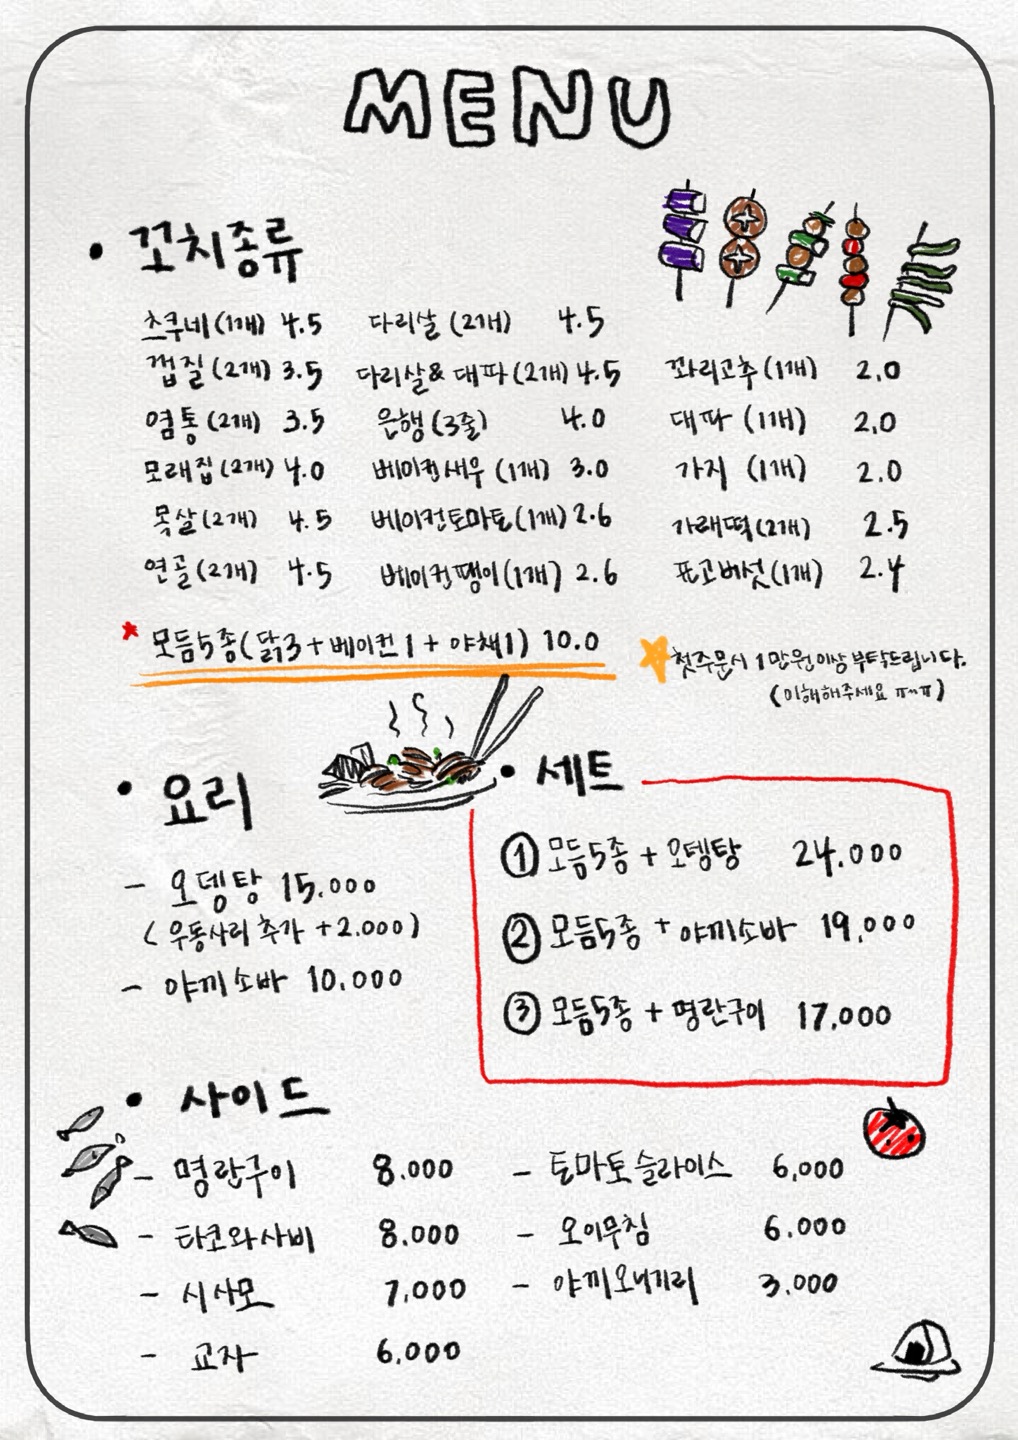 MENU
• 꼬치종류
츠쿠네(1개) 4.5 다리살 (2개) 4.5
껍질(2개) 3.5 다리살& 대파(2개) 4.5 꽈리고추(1개) 2.0
염통(2개) 3.5 은행(3줄) 4.0 대파 (1개) 2.0
모래집(2개) 4.0 베이컨새우 (1개) 3.0 가지 (1개) 2.0
목살(2개) 4.5 베이컨토마토(1개) 2.6 가래떡(2개) 2.5
연골(2개) 4.5 베이컨팽이(1개) 2.6 표고버섯(1개) 2.4
모듬5종(닭3+베이컨1+야채1) 10.0
첫주문시 1만원이상 부탁드립니다.
(이해해주세요 ㅠㅡㅠ)
• 요리
- 오뎅탕 15.000
(우동사리 추가 +2.000)
- 야끼소바 10.000
• 세트
① 모듬5종 + 오뎅탕 24.000
② 모듬5종 + 야끼소바 19,000
③ 모듬5종 + 명란구이 17,000
• 사이드
- 명란구이 8.000 - 토마토슬라이스 6,000
- 타코와사비 8.000 - 오이무침 6.000
- 시사모 7,000 - 야끼오니기리 3.000
- 교자 6,000